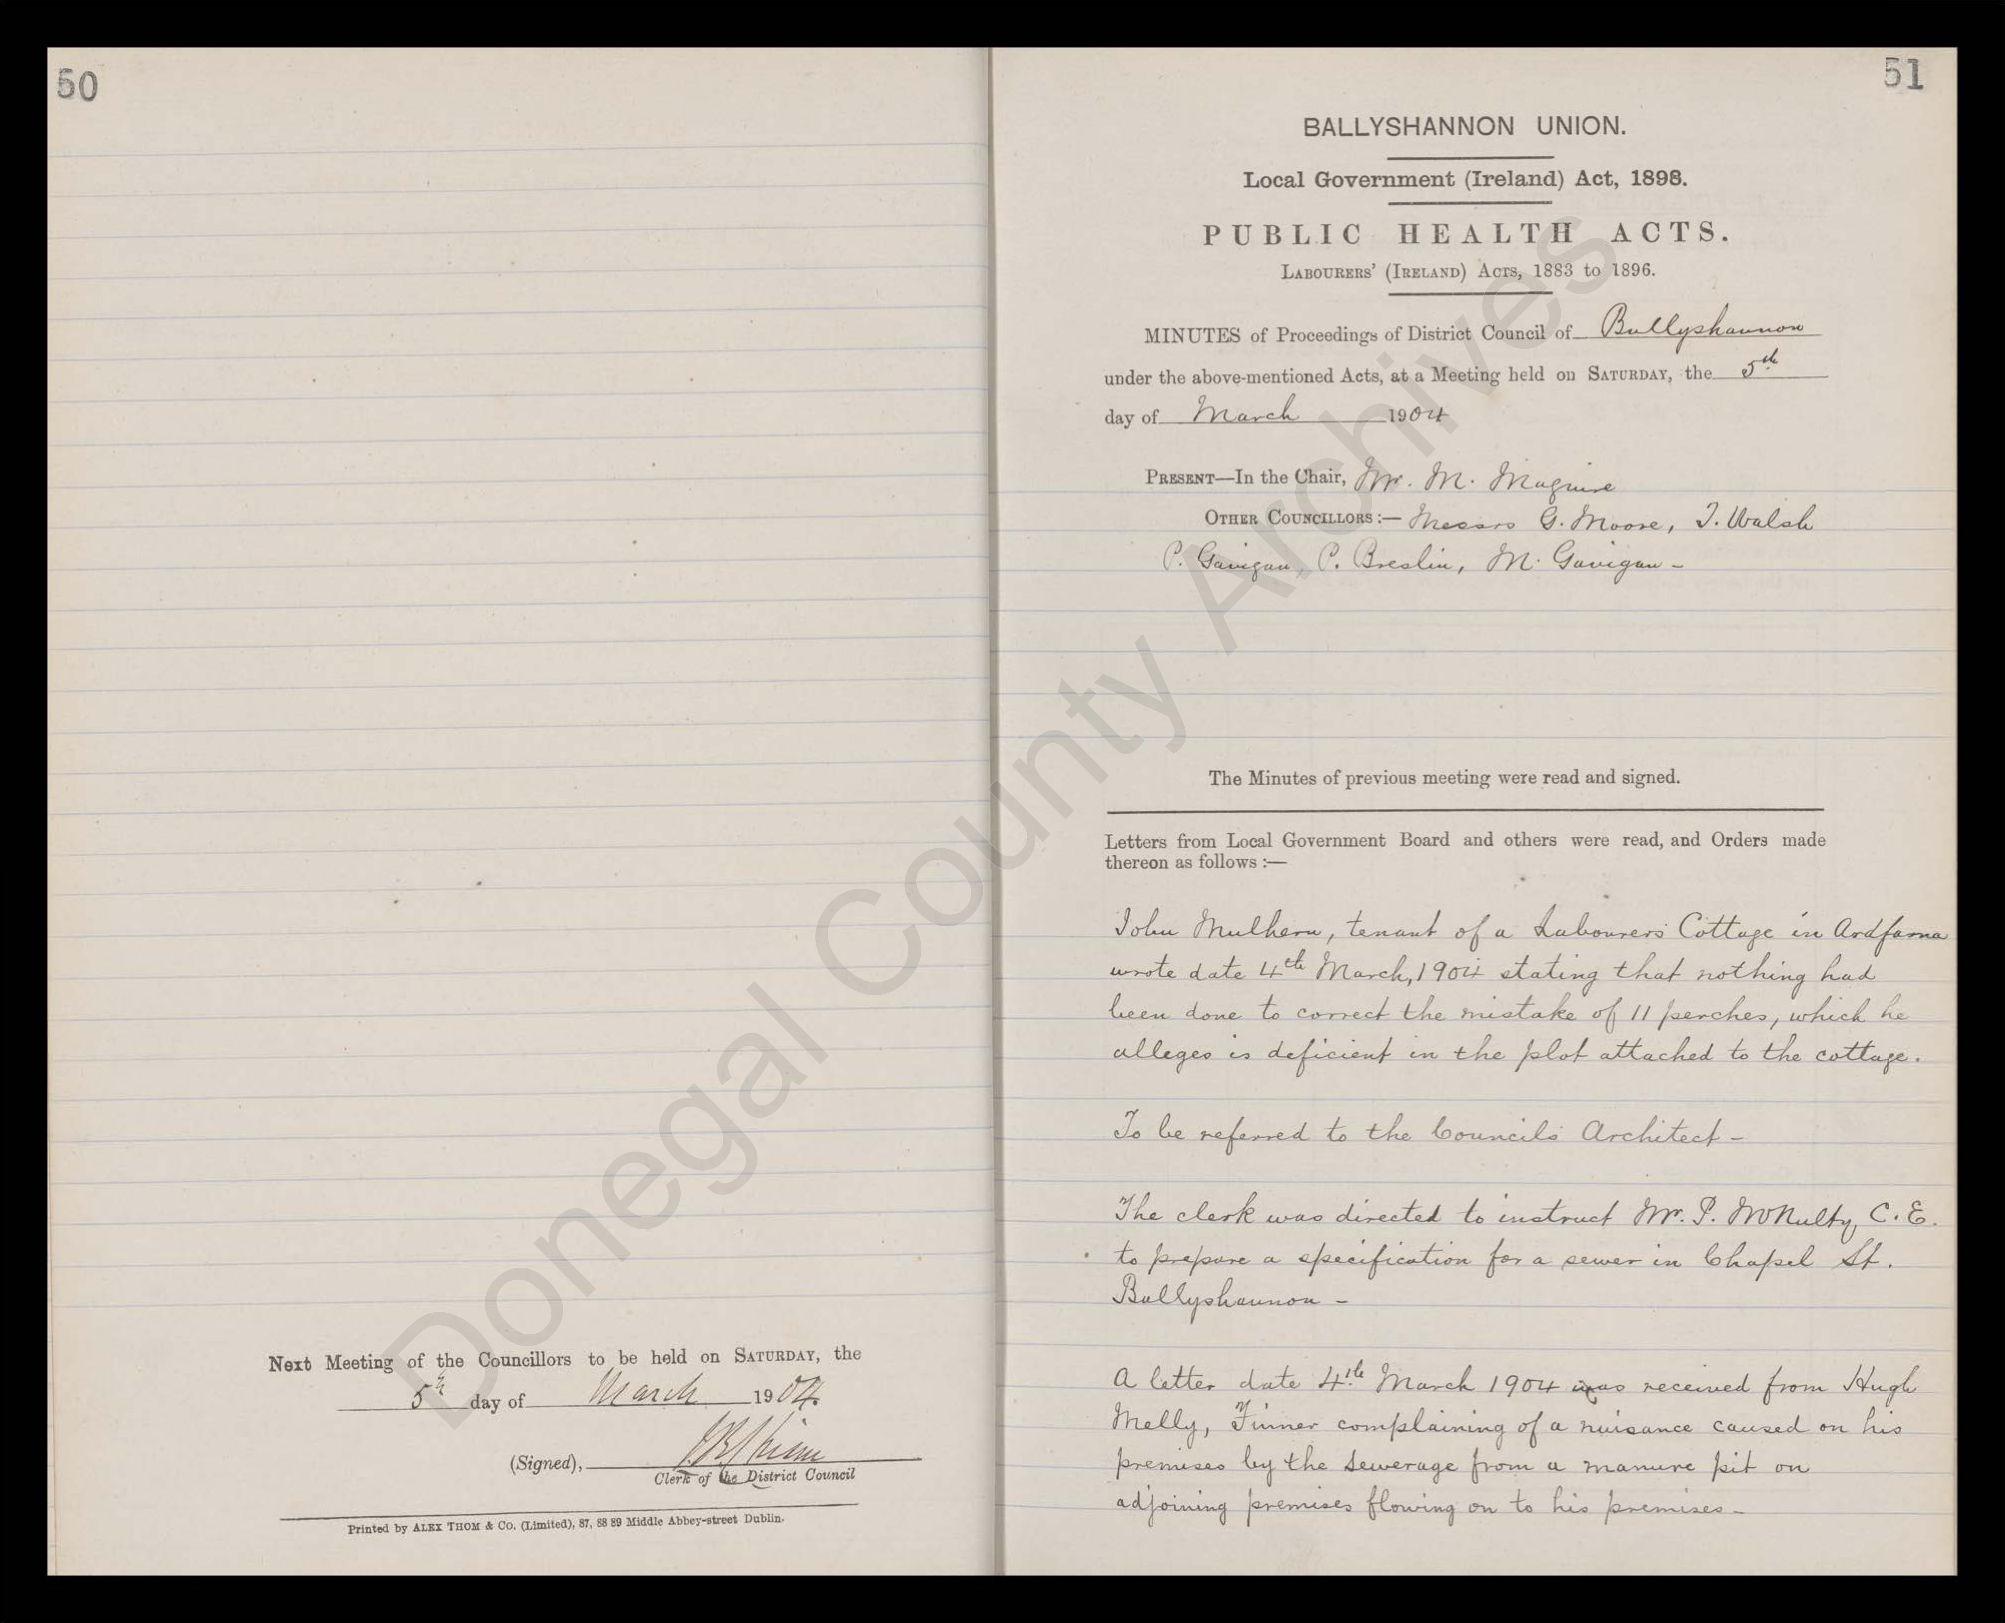 50
Next Meeting of the Councillors to be held on SATURDAY, the
5th day of March 1904.
(Signed),
Clerk of the District Council
Printed by ALEX THOM & Co. (Limited), 87, 88 89 Middle Abbey-street Dublin.
51
BALLYSHANNON UNION.
Local Government (Ireland) Act, 1898.
PUBLIC HEALTH ACTS.
LABOURERS' (IRELAND) ACTS, 1883 to 1896.
MINUTES of Proceedings of District Council of Ballyshannon
under the above-mentioned Acts, at a Meeting held on SATURDAY, the 5th
day of March 1904
PRESENT—In the Chair, Mr. M. Maguire
OTHER COUNCILLORS:— Messrs G. Moore, T. Walsh
P. Gavigan, P. Breslin, M. Gavigan -
The Minutes of previous meeting were read and signed.
Letters from Local Government Board and others were read, and Orders made
thereon as follows:—
John Mulhern, tenant of a Labourers Cottage in Ardfarna
wrote date 4th March, 1904 stating that nothing had
been done to correct the mistake of 11 perches, which he
alleges is deficient in the plot attached to the cottage.
To be referred to the Councils Architect -
The clerk was directed to instruct Mr. P. McNulty, C.E.
to prepare a specification for a sewer in Chapel St.
Ballyshannon -
A letter date 4th March 1904 was received from Hugh
Melly, Finner complaining of a nuisance caused on his
premises by the sewerage from a manure pit on
adjoining premises flowing on to his premises -
Donegal County Archives